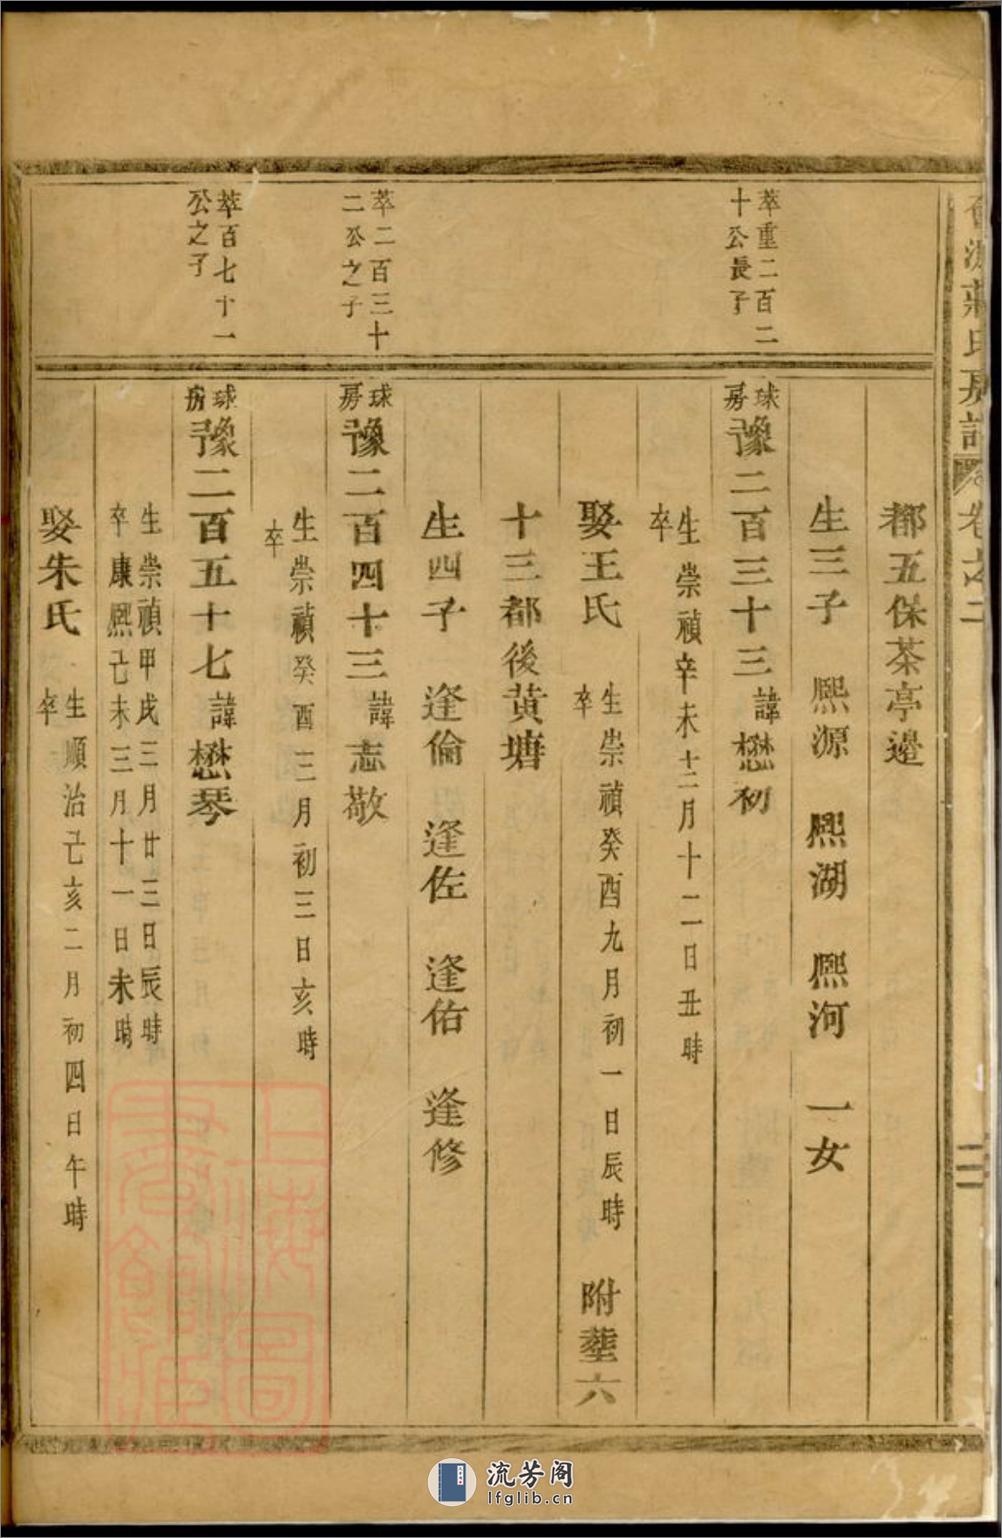 莊氏房譜 卷之二
二
都五保茶亭邉
生三子 熈源 熈湖 熈河 一女
萃重二百二
十公長子
球房豫二百三十三諱懋初
生崇禎辛未十二月十二日丑時
卒
娶王氏 生崇禎癸酉九月初一日辰時 附塟六
卒
十三都後黄塘
生四子 逢倫 逢佐 逢佑 逢修
萃二百三十
二公之子
球房豫二百四十三諱志敬
生崇禎癸酉三月初三日亥時
卒
萃百七十一
公之子
球房豫二百五十七諱懋琴
生崇禎甲戌三月廿三日辰時
卒康熈己未三月十一日未時
娶朱氏 生順治己亥二月初四日午時
卒
上海圖書館藏
流芳阁
lfglib.cn